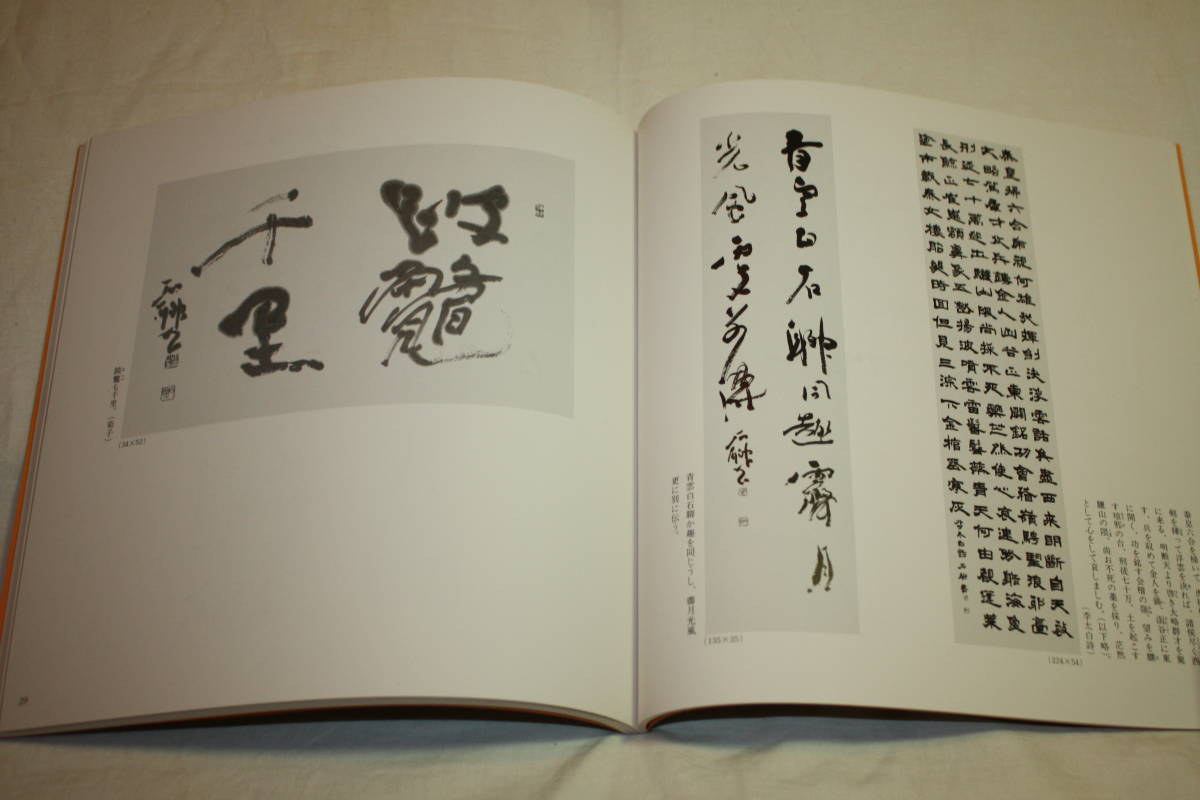 秦皇掃六合虎視何雄哉揮劍決浮雲諸侯盡西来明斷自天啟
大略駕群才收兵鑄金人函谷正東開銘功會稽嶺騁望琅邪臺
刑徒七十萬起土驪山隈尚採不死藥茫然使心哀連弩射海魚
長鯨正崔嵬額鼻象五嶽揚波噴雲雷鬐鬣蔽青天何由覩蓬萊
徐市載秦女樓船幾時回但見三泉下金棺葬寒灰
李太白詩
(224×54)
秦皇六合を掃いて、虎
剣を揮って浮雲を決れば、諸侯尽く西
に来る、明断天より啓き大略群才を駕
す、兵を収めて金人を鋳、函谷正に東
に開く、功を銘す会稽の嶺、望みを騁
す琅邪の台、刑徒七十万、土を起こす
驪山の隈、尚お不死の薬を採り、茫然
として心をして哀しましむ。（以下略）。
（李太白詩）
青雲白石聊同趣霽月
光風更別傳
(135×35)
青雲白石聊か趣を同じうし、霽月光風
更に別に伝う。
跛鼈
千里
(34×52)
跛鼈も千里。（荀子）